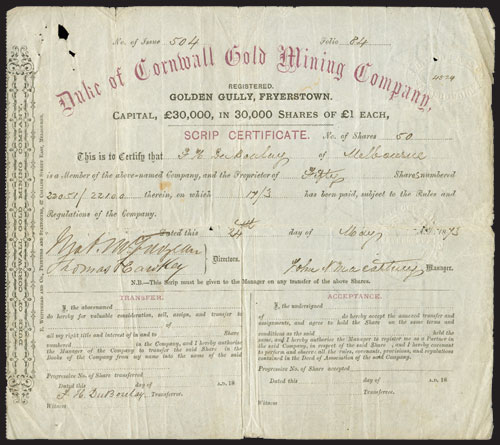 No. of Issue 504 Folio 84
Duke of Cornwall Gold Mining Company,
REGISTERED.
GOLDEN GULLY, FRYERSTOWN.
CAPITAL, £30,000, IN 30,000 SHARES OF £1 EACH,
SCRIP CERTIFICATE. No. of Shares 50
This is to Certify that F H DuBoulay of Melbourne
is a Member of the above-named Company, and the Proprietor of Fifty Shares numbered
22051/22100 therein, on which 17/3 has been paid, subject to the Rules and
Regulations of the Company.
Dated this 24th day of May 1873
Directors.
Thomas
John Manager.
N.B.—This Scrip must be given to the Manager on any transfer of the above Shares.
TRANSFER.
I, the abovenamed
do hereby for valuable consideration, sell, assign, and transfer to
of
all my right title and interest in and to Share
in the above-mentioned Company, and I hereby authorise
the Manager of the Company to transfer the said Share in the
Books of the Company from my name into the name of the said
Progressive No. of Share transferred.
Dated this day of A.D. 18
F. H. DuBoulay Transferror.
Witness
ACCEPTANCE.
I, the undersigned
of do hereby accept the annexed transfer and
assignments, and agree to hold the Share on the same terms and
conditions as the said held the
same, and I hereby authorise the Manager to register me as a Partner in
the said Company, in respect of the said Share ; and I hereby covenant
to perform and observe all the rules, covenants, provisions, and regulations
contained in the Deed of Association of the said Company.
Progressive No. of Share accepted
Dated this day of A.D. 18
Transferee.
Witness
DUKE OF CORNWALL GOLD MINING COMPANY